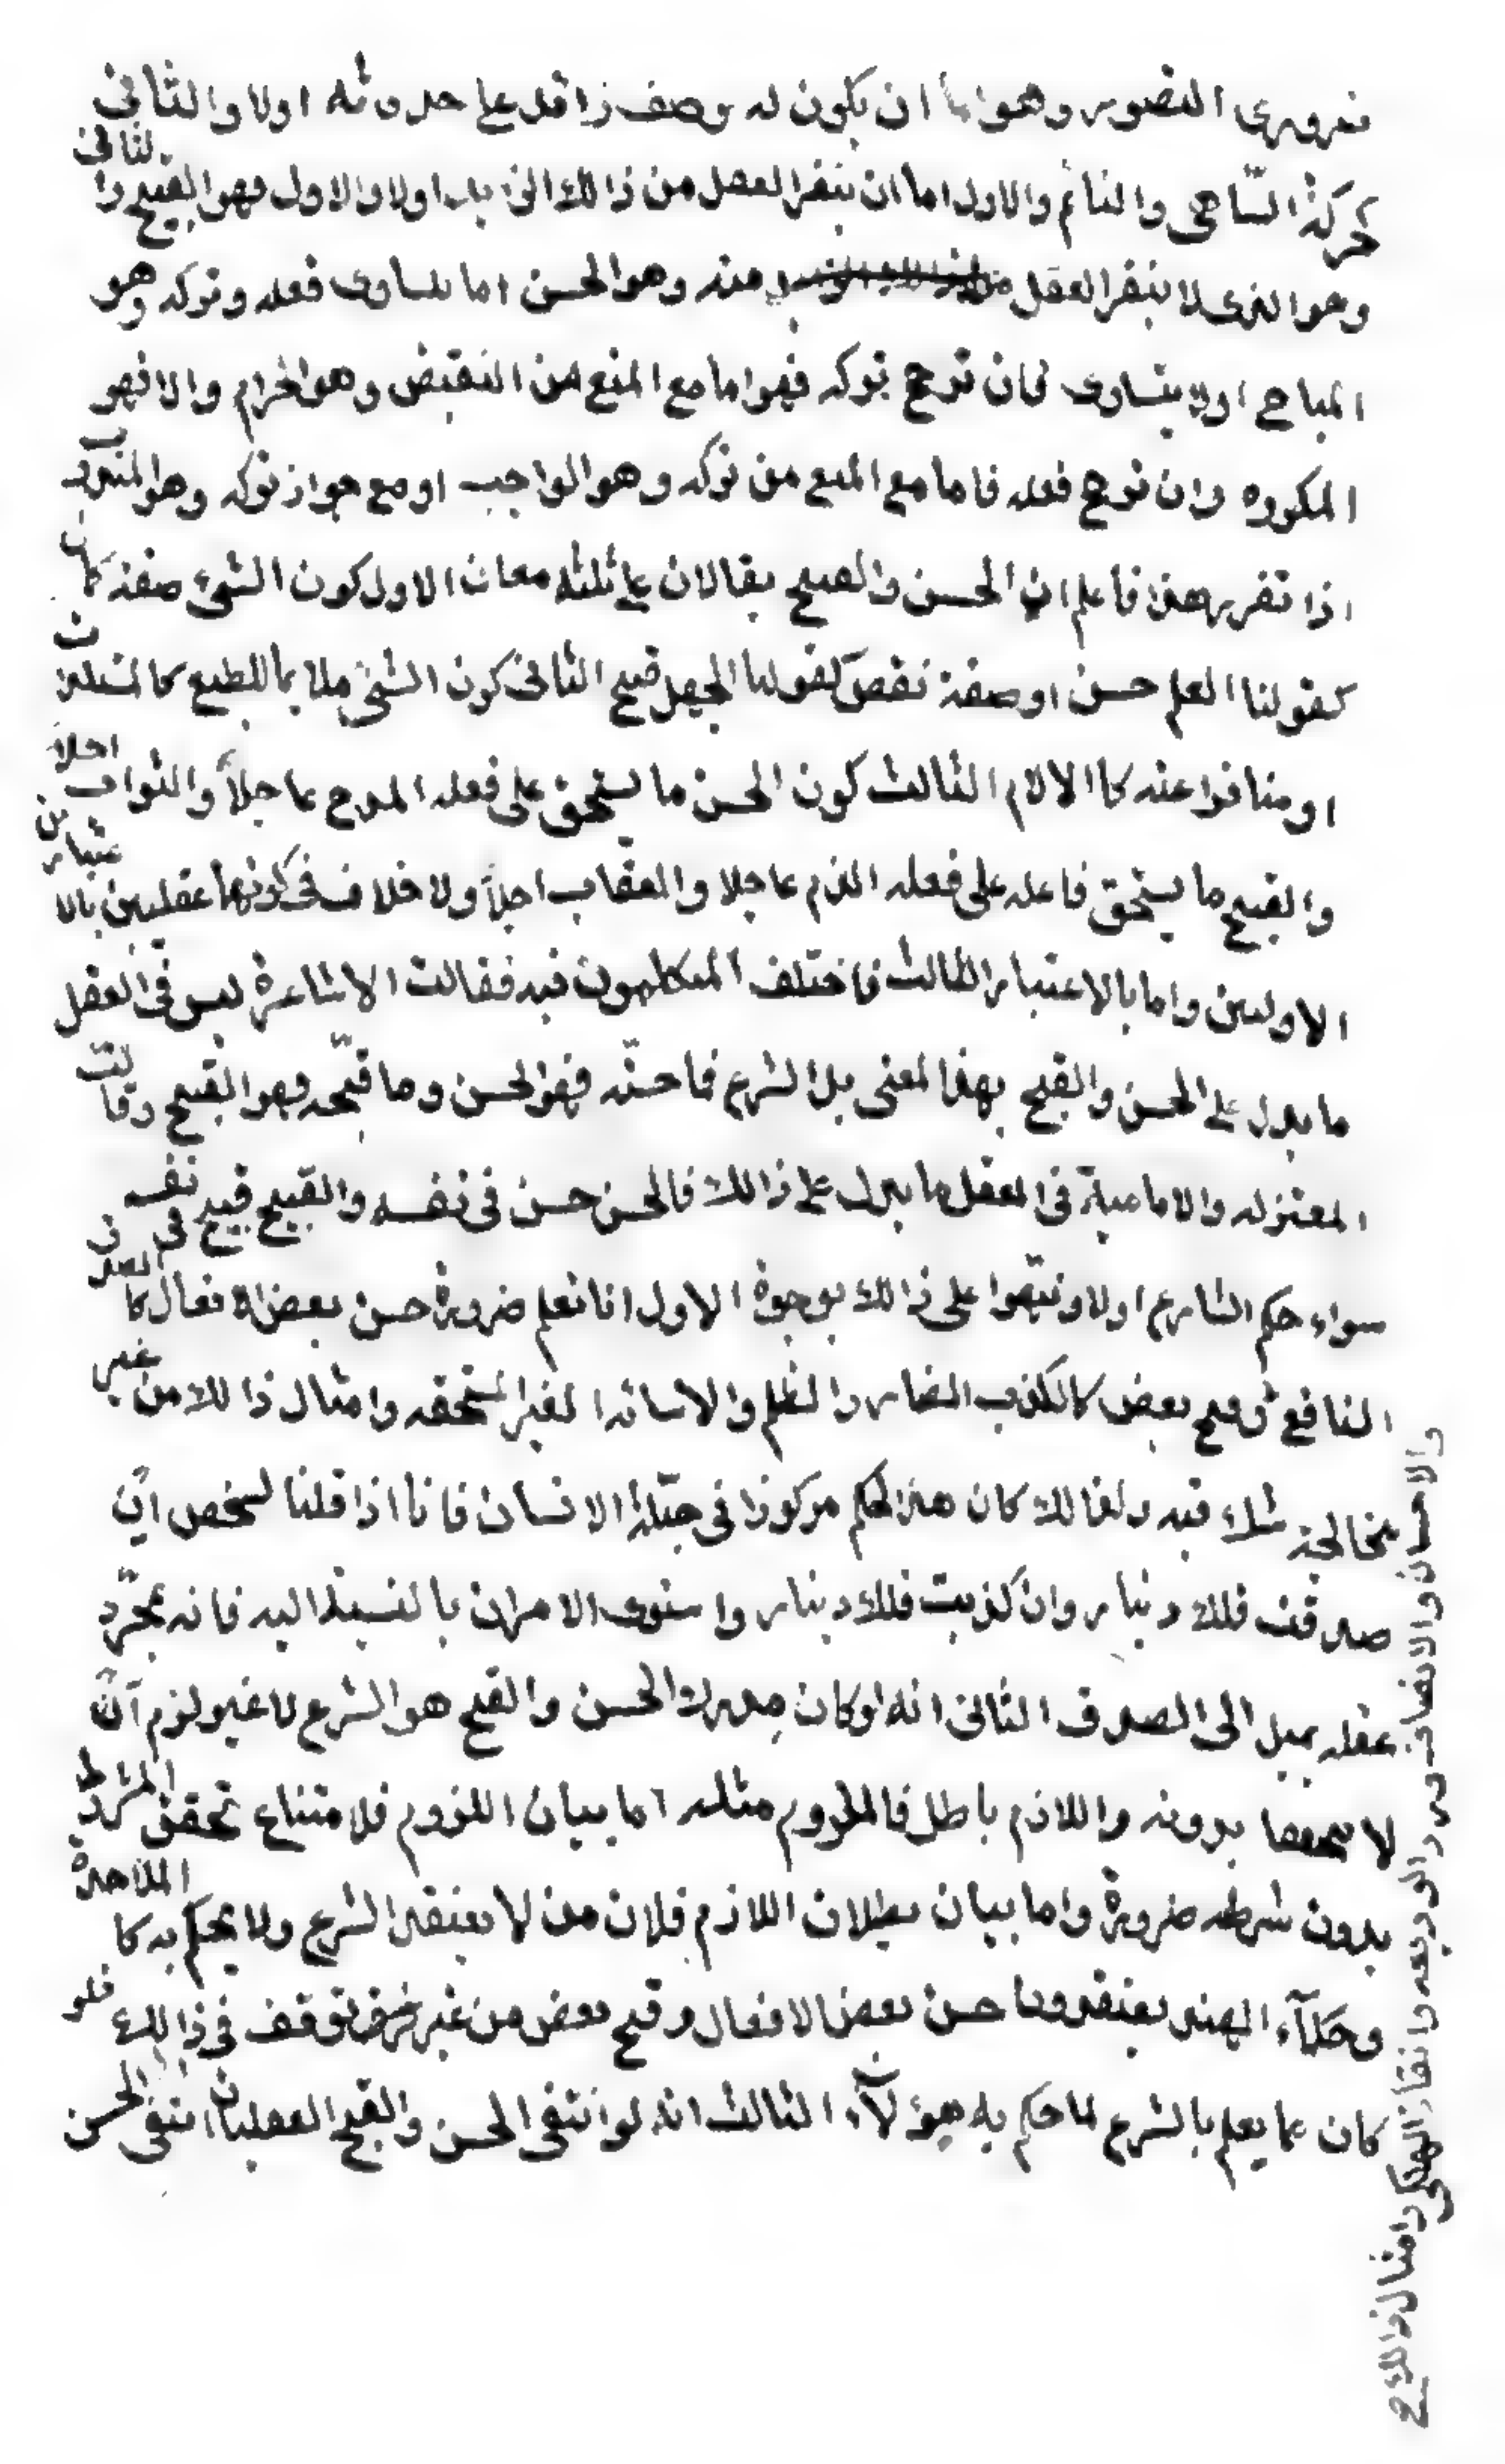 ضروري التصور وهو اما ان يكون له وصف زائد على حدوثه اولا والثاني
كحركة السّاهي والنائم والاول اما ان ينفر العقل من ذالك الزايد اولا والاول فهو القبيح والثاني
وهو الذى لا ينفر العقل منه وهو الحسن اما يتساوى فعله وتركه وهو
المباح اولا يتساوى فان ترجح تركه فهو اما مع المنع من النقيض وهو الحرام والا فهو
المكروه وان ترجح فعله فاما مع المنع من تركه وهو الواجب او مع جواز تركه وهو المندوب
اذا تقرر هذا فاعلم ان الحسن والقبيح يقالان على ثلثه معان الاول كون الشئ صفة كمال
كقولنا العلم حسن او صفة نقص كقولنا الجهل قبيح الثانى كون الشئ ملايما للطبع كالمستلذات
او منافرا عنه كالالام الثالث كون الحسن ما يستحق على فعله المدح عاجلاً والثواب اجلاً
والقبيح ما يستحق فاعله على فعله الذم عاجلا والعقاب اجلاً ولا خلاف فى كونهما عقليين بالاعتبارين
الاولين واما بالاعتبار الثالث فاختلف المتكلمون فيه فقالت الاشاعرة ليس فى العقل
ما يدل على الحسن والقبح بهذا المعنى بل الشرع فما حسّنه فهو الحسن وما قبّحه فهو القبيح وقالت
المعتزله والامامية فى العقل ما يدل على ذالك فالحسن حسن فى نفسه والقبيح قبيح فى نفسه
سواء حكم الشارع اولا ونبّهوا على ذالك بوجوة الاول انا نعلم ضرورة حسن بعض الافعال كالصدق
النافع وقبح بعض كالكذب الضار والظلم والاسائه الغير المستحقه وامثال ذالك من غير
والاحسان والانصاف ورد الوديعه وانقاذ الهلكى وامثال ذالك
مخالجة شك فيه ولذالك كان هذا الحكم مركوزا فى جبّلة الانسان فانا اذا قلنا لشخص ان
صدقت فلك دينار وان كذبت فلك دينار واستوى الامران بالنسبة اليه فانه بمجرّد
عقله يميل الى الصدق الثانى انه لو كان مدرك الحسن والقبح هو الشرع لا غير لزم ان
لا يتحققا بدونه واللازم باطل فالملزوم مثله اما بيان اللزوم فلامتناع تحقق المشروط
بدون شرطه ضرورة واما بيان بطلان اللازم فلان من لا يعتقد الشرع ولا يحكم به كالملاحدة
وحكمآء الهند يعتقدون حسن بعض الافعال وقبح بعض من غير توقف فى ذالك فلو
كان مما يعلم بالشرع لما حكم به هؤلآء الثالث انه لو انتفى الحسن والقبح العقليان انتفى الحسن